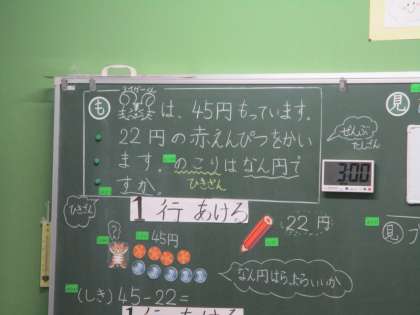 も は、45円もっています。
22円の赤えんぴつをかい
ます。のこりはなん円で
すか。 ひきざん
ぜんぶ
たしざん
3:00
見
ひきざん
1行あけろ
?
45円
22円
見
なん円はらったらいいか
(しき)45-22=
1行あけろ